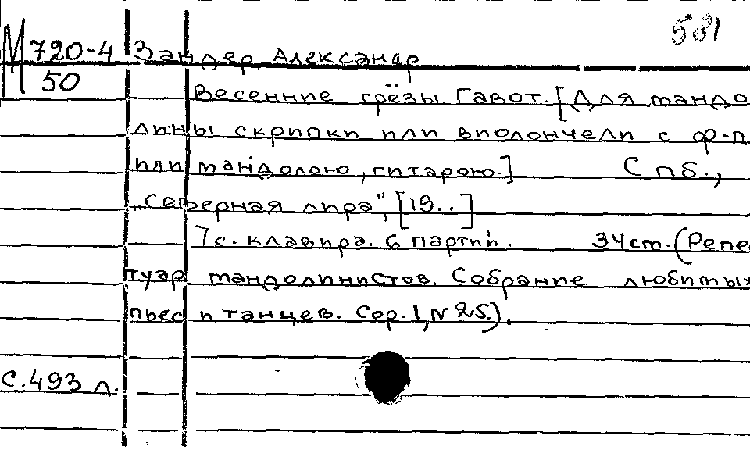 581
М 720-4 Зандер, Александр
50
Весенние грёзы. Гавот. [Для мандо
лины скрипки или виолончели с ф-п
или мандолою, гитарою.] Спб.,
"Северная лира", [19..]
7с. клавира. 6 партий. 34ст. (Репе
туар мандолинистов. Собрание любимых
пьес и танцев. Сер. 1, № 25).
С.493 л.